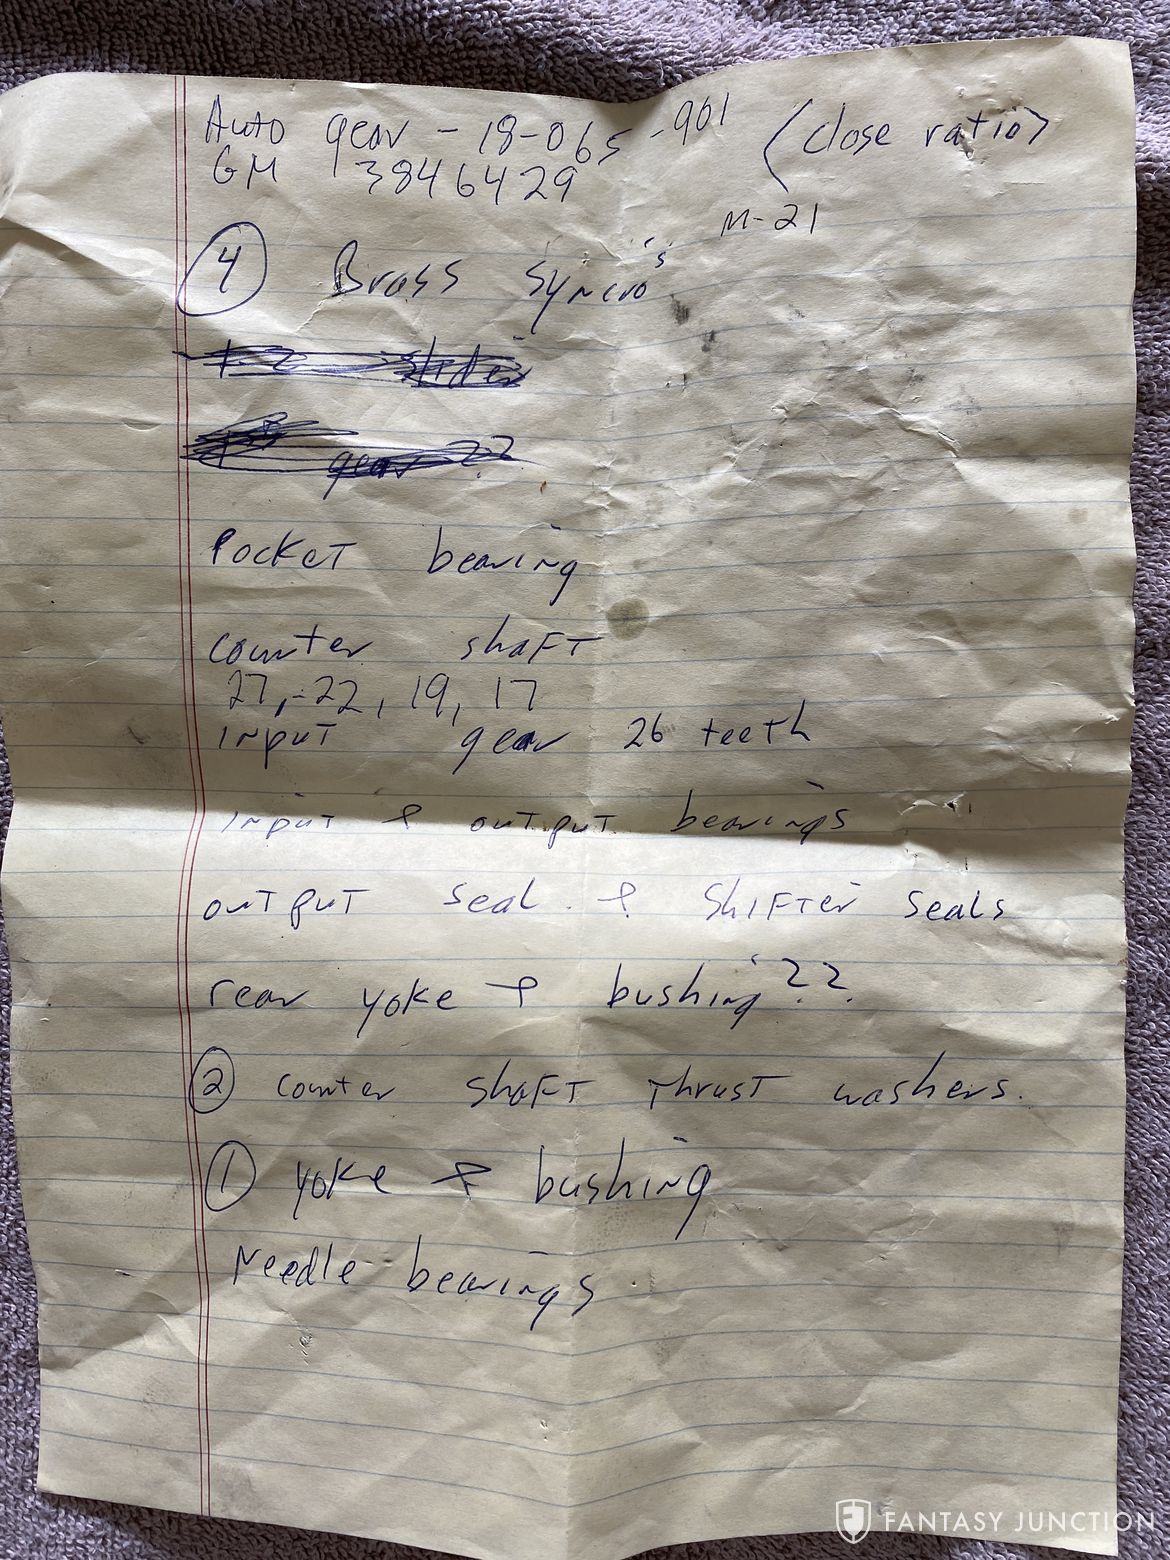 Auto gear - 18-065-901 (close ratio)
GM 3846429
M-21
4 Brass Syncro's
gear ??
Pocket bearing
counter shaft
27, 22, 19, 17
input gear 26 teeth
input & output bearings
output seal & Shifter seals
rear yoke & bushing ??
2 counter shaft thrust washers.
1 yoke & bushing
Needle bearings
FANTASY JUNCTION